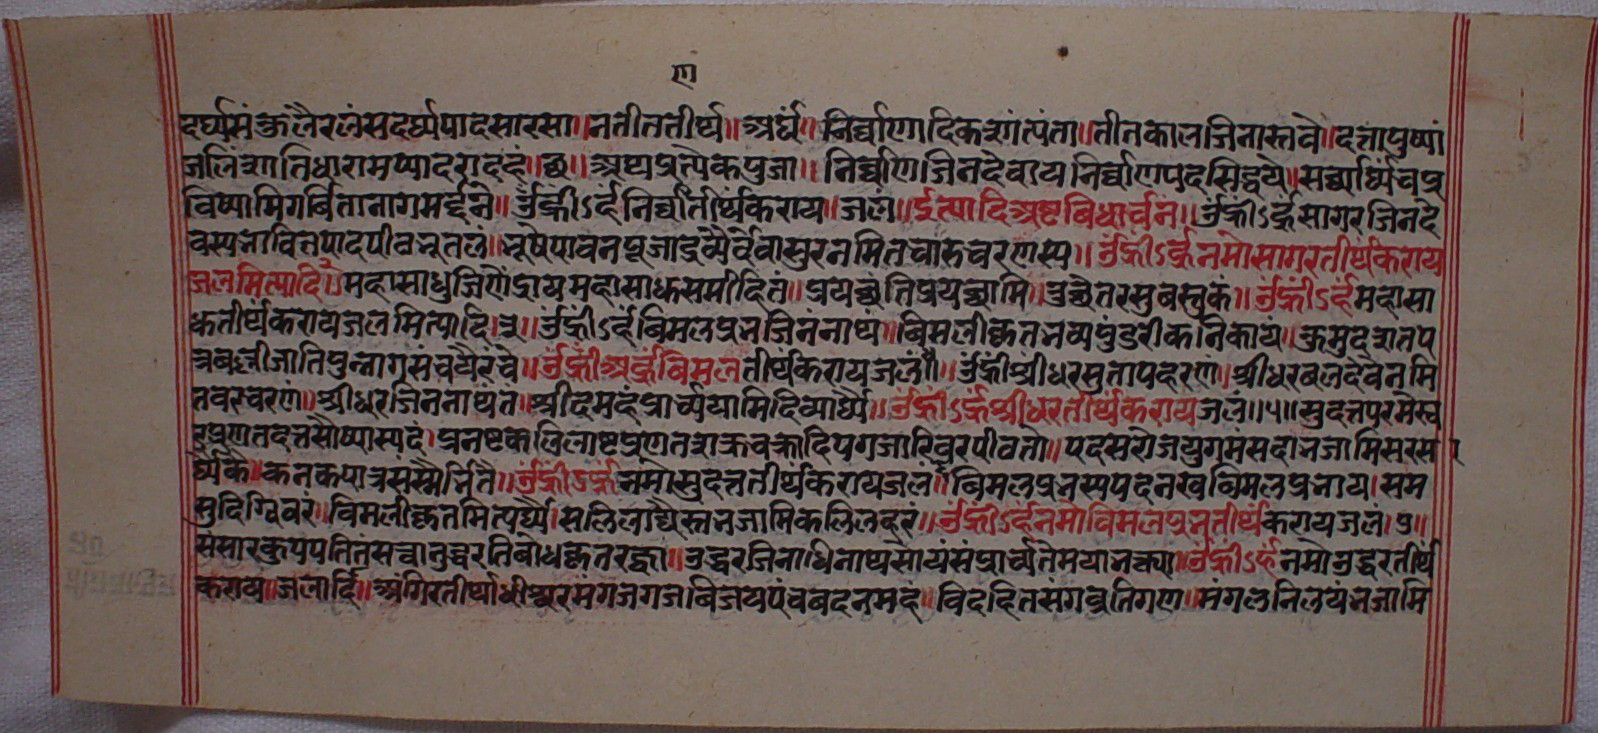 दर्घ्यसंकुलैरलंसुदर्घ्यपादसारसा॥नतीततीर्थ॥अर्घं॥निर्वाणादिकशांत्यंता॥तीतकालजिनास्तवे॥दत्तापुष्पां
जलिशांतिधारामप्यादरादहं॥छ॥अथप्रत्येकपुजा॥निर्वाणजिनदेवायनिर्वाणपदसिद्धये॥सर्वार्घ्यंचप्र
विष्यामिगर्वितानागमर्द्दने॥ॐह्रीँऽर्हंनिर्वाणतीर्थंकराय॥जलं॥ईत्यादिअष्टबिधार्चनं॥ॐह्रीँऽर्हंसागरजिनदे
वस्यनावित्तपादपीवभूतलं॥भूषैपावनपूजाद्रव्यैर्देवासुरनमितचारुचरणस्य॥ॐह्रीँऽर्हंनमोसागरतीर्थंकराय
जलमित्यादि॥२॥महासाधुजिणेंद्रायमहासाधुसमीहितं॥प्रयछंतिप्रयछामि॥उच्चैतरसुबस्तुकं॥ॐह्रीँऽर्हंमहासा
धुतीर्थंकरायजलमित्यादि।३॥ॐह्रीँऽर्हंबिमलप्रभजिनंनाथं॥बिमलीकृतभव्यपुंडरीकनिकायं॥कुमुदशतप
त्रबकुलीजातिपुन्नागसंचयैरचे॥ॐह्रीँअर्हंबिमलतीर्थंकरायजलं॥४॥ॐह्रीँश्रीधरसुतापदरणं॥श्रीधरबलदेवनमि
तवरचरणं॥श्रीधरजिननाथंतं॥श्रीदमहंप्रार्चयामिदिव्यार्घ्यै॥ॐह्रीँऽर्हंश्रीधरतीर्थंकरायजलं॥५॥सुदत्तपरमेश्व
रप्रणतदत्तसौख्यास्पदं।प्रनष्टकलिलाष्टप्रणतशक्रचक्रादिप
पदसरोजयुगमसदाभजामिसरस
र्घ्यकै॥कनकपात्रसस्मर्भितै॥ॐह्रीँऽर्हंनमोसुदत्ततीर्थंकरायजलं॥बिमलप्रभस्यपदनखबिमलप्रभाय।सम
सुदिग्विवरं॥विमलीकृतमित्यर्घ्यै।सलिलाद्यैस्तभजामिकलिलहरं॥ॐह्रीँऽर्हंनमोविमलप्रभतीर्थंकरायजलं।७॥
संसारकुपपतितंसत्वानुद्धरतिबोधकृतरद्वा॥उद्धरजिनाधिनाथसोयंसंप्रार्च्यतेमयाभक्त्या॥ॐह्रीँऽर्हंनमोउद्धरतीर्थं
कराय॥जलादिं॥अंगिरतीर्थाधीश्वरमंगजगजविजयपंचबदनमहं॥विदहितसंगव्रतिगण॥मंगलनिलयंभजामि